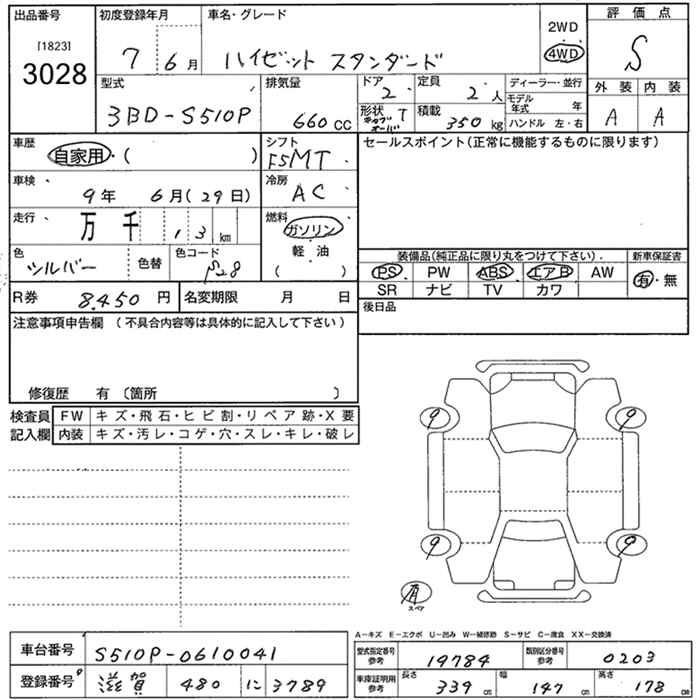 出品番号 初度登録年月 車名・グレード 2WD 評価点
[1823] 3028 7 6月 ハイゼット スタンダード 4WD S
型式 排気量 ドア 定員 ディーラー・並行 外装 内装
3BD-S510P 660cc 2 2人 モデル年式 年 A A
形状 T キャブオーバ 積載 350kg ハンドル 左・右
車歴 自家用・( ) シフト F5MT セールスポイント(正常に機能するものに限ります)
車検 9年 6月(29日) 冷房 AC
走行 万 千 1 3 km 燃料 ガソリン 軽油 ( )
色 シルバー 色替 色コード S28
装備品(純正品に限り丸をつけて下さい). 新車保証書
PS PW ABS エアB AW 有・無
SR ナビ TV カワ
R券 8,450円 名変期限 月 日 後日品
注意事項申告欄 (不具合内容等は具体的に記入して下さい)
修復歴 有 〔箇所 〕
検査員 FW キズ・飛石・ヒビ割・リペア跡・X要
記入欄 内装 キズ・汚レ・コゲ・穴・スレ・キレ・破レ
9 9
9 9
有
スペア
A-キズ E-エクボ U-凹み W-補修跡 S-サビ C-腐食 XX-交換済
車台番号 S510P-0610041 型式指定番号 参考 19784 類別区分番号 参考 0203
登録番号 滋賀 480 に 3789 車庫証明用 参考 長さ 339cm 幅 147cm 高さ 178cm